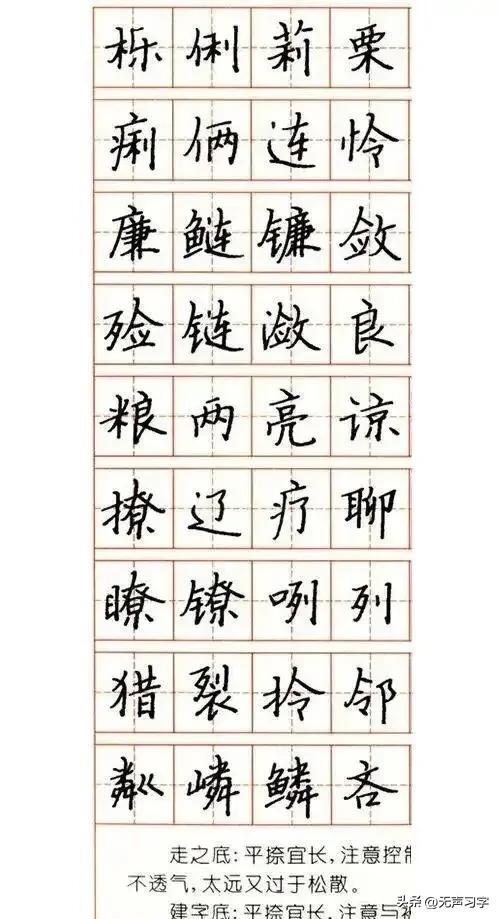 栎俐莉栗
痢俩连怜
廉鲢镰敛
殓链潋良
粮两亮谅
撩辽疗聊
瞭镣咧列
猎裂拎邻
粼嶙鳞吝
走之底：平捺宜长，注意控制
不透气，太远又过于松散。
建字底：平捺宜长，注意与
头条 @无声习字